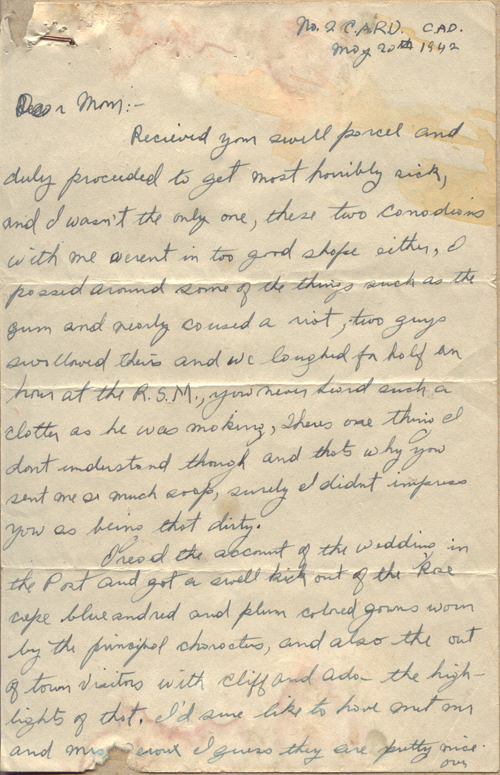 No. 2 C.A.R.U. C.A.D.
May 20th 1942
Dear Mom:-
Recieved your swell parcel and
duly proceeded to get most horribly sick,
and I wasn't the only one, these two Canadians
with me werent in too good shape either, I
passed around some of the things such as the
gum and nearly caused a riot, two guys
swallowed theirs and we laughed for half an
hour at the R.S.M., you never heard such a
clatter as he was making, Theres one thing I
dont understand though and thats why you
sent me so much soap, surely I didnt impress
you as being that dirty.
I read the account of the wedding in
the Post and got a swell kick out of the Rose
crepe blue and red and plum colored gowns worn
by the principal characters, and also the out
of town visitors with Cliff and Ada - the high-
lights of that. I'd sure like to have met mr
and mrs I guess they are pretty nice.
over